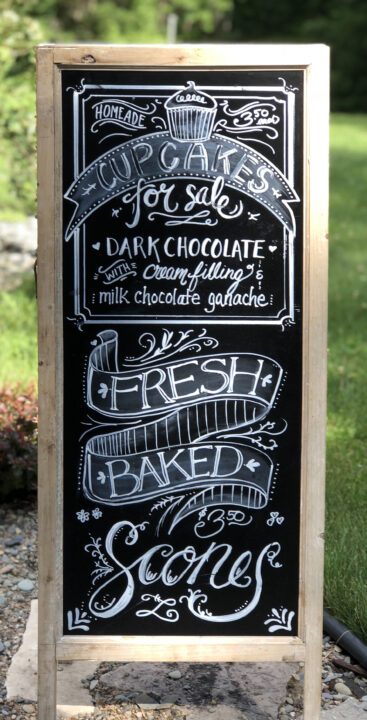 HOMEADE
3.50 each
CUPCAKES
for sale
DARK CHOCOLATE
WITH cream filling &
milk chocolate ganache
FRESH
BAKED
$3.50
Scones